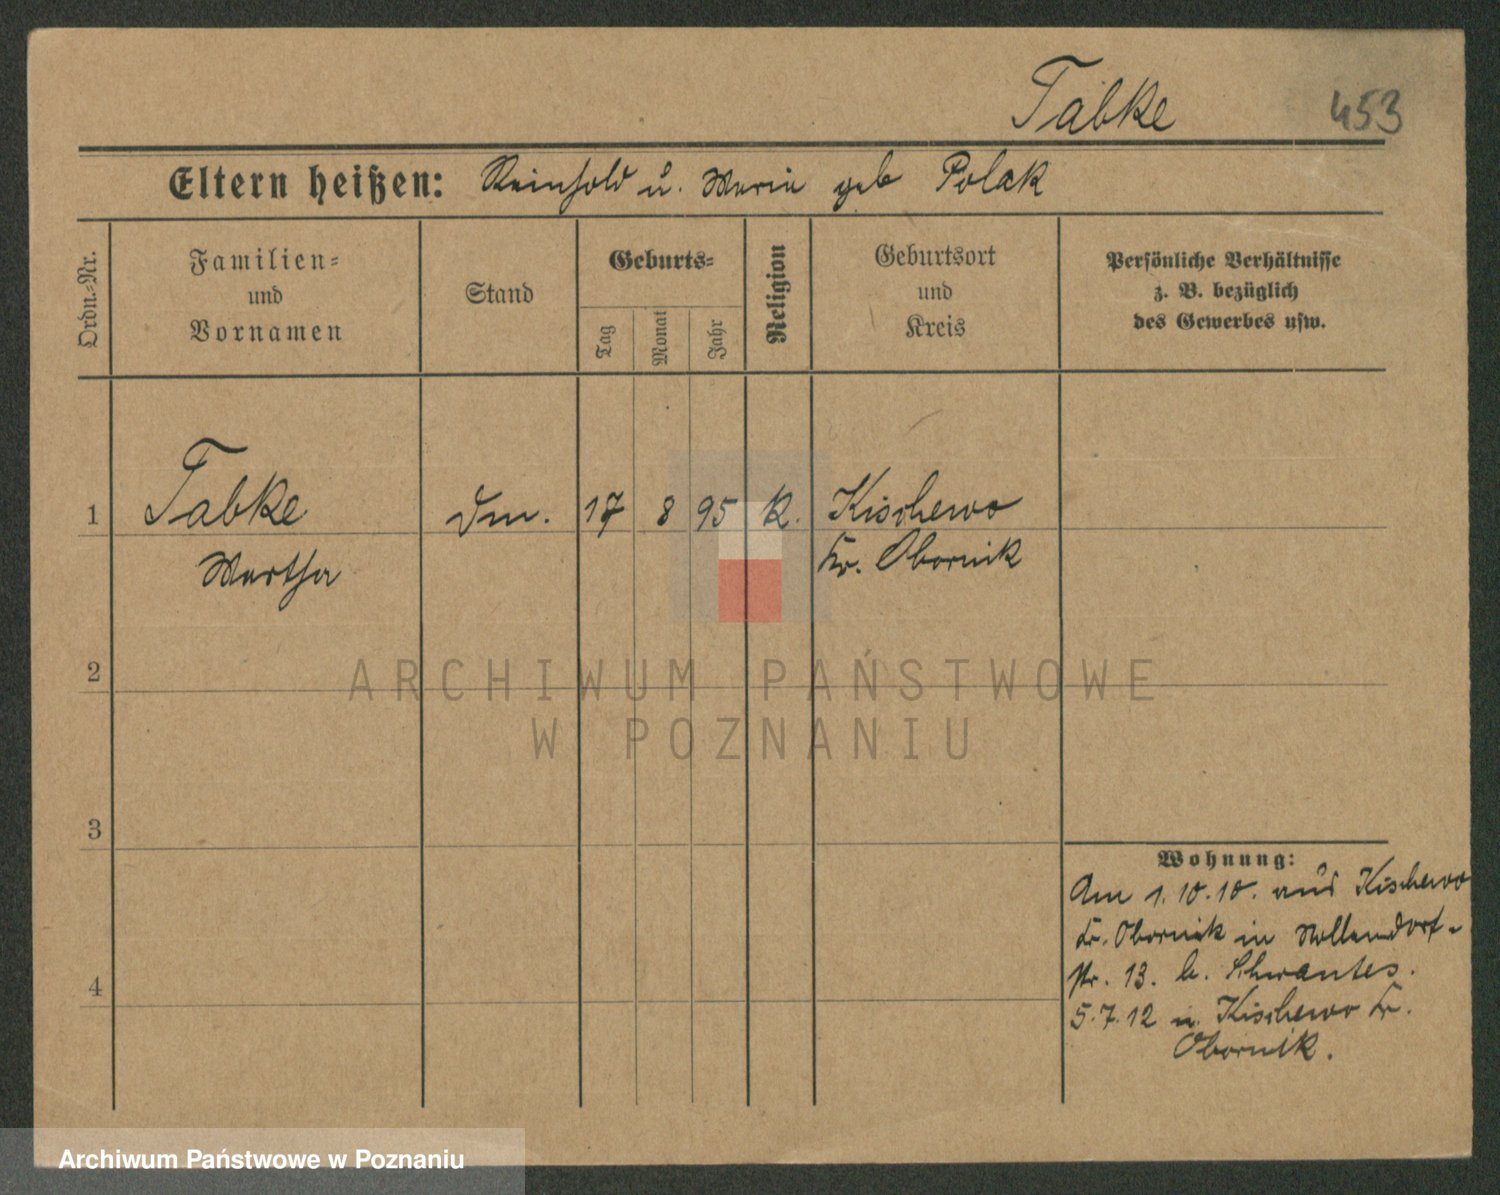 Tabke
453
Eltern heißen: Reinhold u. Maria geb Polak
Ordn.-Nr.
Familien-
und
Vornamen
Stand
Geburts-
Tag
Monat
Jahr
Religion
Geburtsort
und
Kreis
Persönliche Verhältnisse
z. B. bezüglich
des Gewerbes usw.
1 Tabke 17 8 95 k. Kischewo
Martha Kr. Obornik
2
3
4
Wohnung:
Am 1.10.10. aus Kischewo
Kr. Obornik in Nollendorf-
str. 13. b. Schwantes.
5.7.12 n. Kischewo Kr.
Obornik.
ARCHIWUM PAŃSTWOWE
W POZNANIU
Archiwum Państwowe w Poznaniu